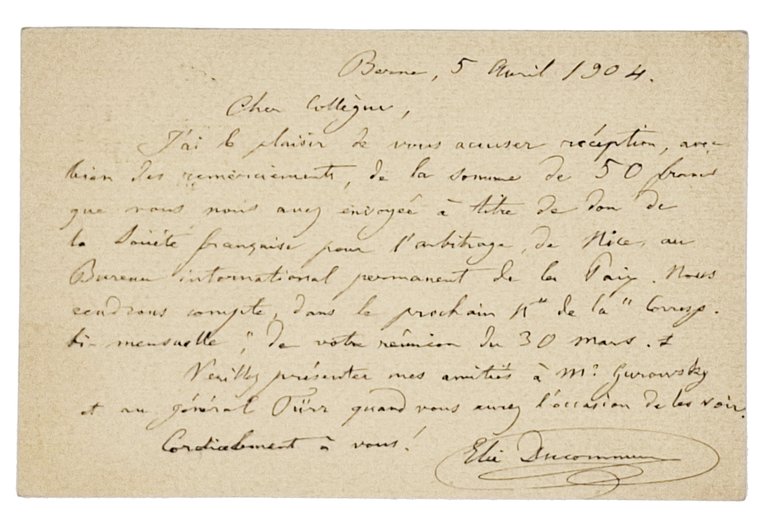 Berne, 5 Avril 1904.
Cher Collègue,
J'ai le plaisir de vous accuser réception, avec
bien des remerciements, de la somme de 50 francs
que vous nous avez envoyée à titre de don de
la Société française pour l'arbitrage, de Nice, au
Bureau international permanent de la Paix. Nous
rendrons compte, dans le prochain No de la "Corresp.
bi-mensuelle", de votre réunion du 30 mars.
Veuillez présenter mes amitiés à Mr. Gurowsky
et au général Türr quand vous aurez l'occasion de les voir.
Cordialement à vous!
Elie Ducommun